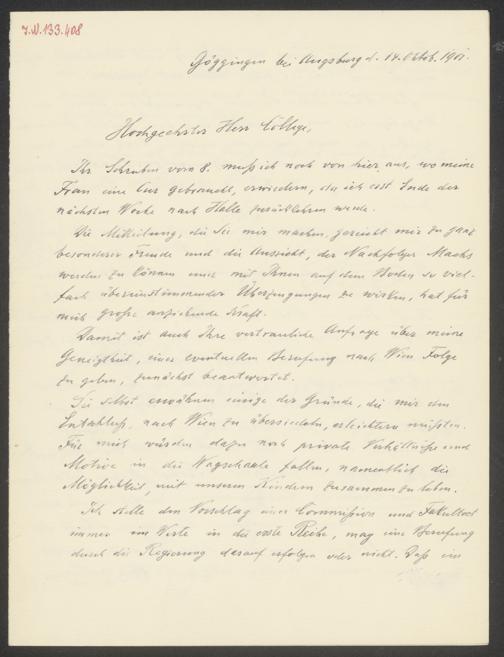 J.N. 133.408
Göggingen bei Augsburg d. 14. Oktob. 1901.
Hochgeehrter Herr College,
Ihr Schreiben vom 8. muß ich noch von hier aus, wo meine
Frau eine Cur gebraucht, erwiedern, da ich erst Ende der
nächsten Woche nach Halle zurückkehren werde.
Die Mitteilung, die Sie mir machen, gereicht mir zu ganz
besonderer Freude und die Aussicht, der Nachfolger Machs
werden zu können und mit Ihnen auf dem Boden so viel-
fach übereinstimmender Überzeugungen zu wirken, hat für
mich große anziehende Kraft.
Damit ist auch Ihre vertrauliche Anfrage über meine
Geneigtheit, einer eventuellen Berufung nach Wien Folge
zu geben, zunächst beantwortet.
Sie selbst erwähnen einige der Gründe, die mir den
Entschluß, nach Wien zu übersiedeln, erleichtern müßten.
Für mich würden dazu noch private Verhältnisse und
Motive in die Wagschaale fallen, namentlich die
Möglichkeit, mit unseren Kindern zusammen zu leben.
Ich stelle den Vorschlag einer Commission und Fakultät
immer im Werte in die erste Reihe, mag eine Berufung
durch die Regierung darauf erfolgen oder nicht. Daß ein